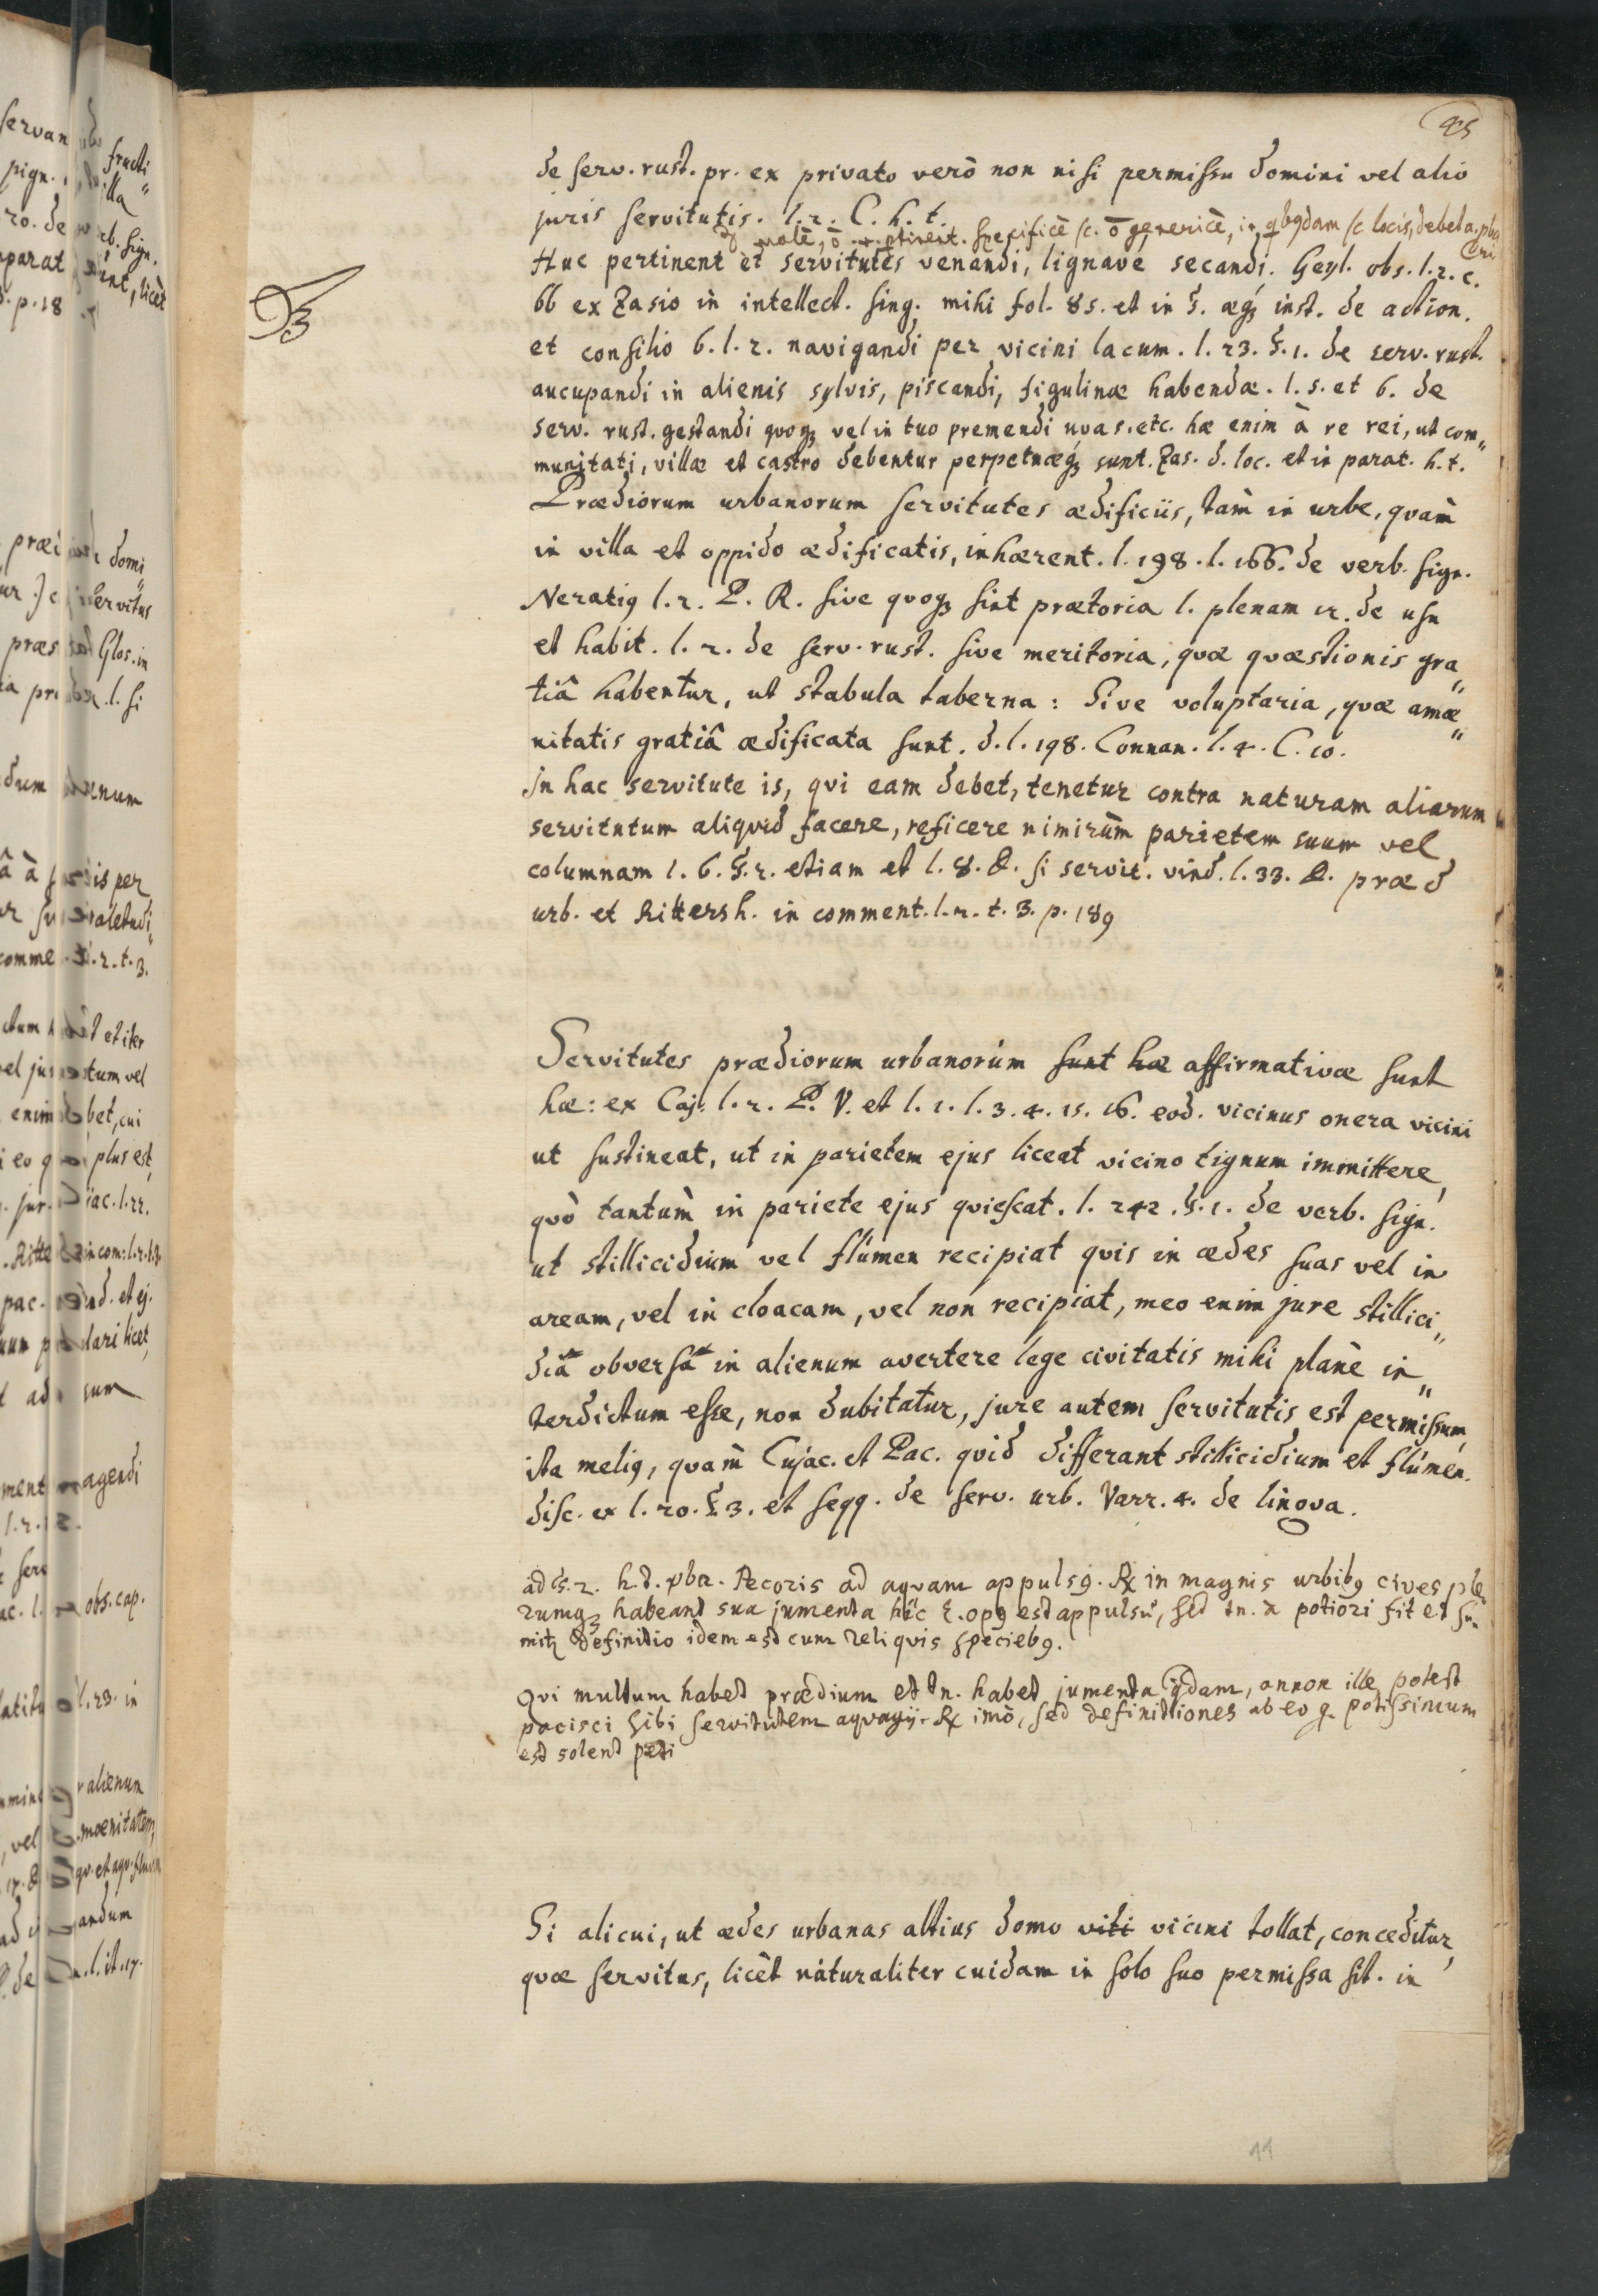 45
de serv. rust. pr. ex privato verò non nisi permissu domini vel alio
juris servitutis. l. 2. C. h. t.
specificè sc. õ genericè, in qbqdam sc locis, debet a. pluo
Huc pertinent et servitutes venandi, lignave secandi. Geyl. obs. l. 2. c.
66 ex Zasio in intellect. sing. mihi fol. 85. et in §. æq3 inst. de action.
et consilio 6. l. 2. navigandi per vicini lacum. l. 23. §. 1. de serv. rust.
aucupandi in alienis sylvis, piscandi, figulinæ habendæ. l. 5. et 6. de
serv. rust. gestandi quoq3 vel in tuo premendi uvas. etc. hæ enim à re rei, ut com„
munitati, villæ et castro debentur perpetuæq3 sunt. Zas. d. loc. et in parat. h. t.
Prædiorum urbanorum servitutes ædificiis, tàm in urbe, quàm
in villa et oppido ædificatis, inhærent. l. 198. l. 166. de verb. sign.
Neratiq l. 2. P. R. sive quoq3 sint prætoria l. plenam 12. de usu
et habit. l. 2. de serv. rust. sive meritoria, quæ quæstionis gra„
tiâ habentur, ut stabula taberna: Sive voluptaria, quæ amæ„
nitatis gratiâ ædificata sunt. d. l. 198. Connan. l. 4. C. 10.
In hac servitute is, qui eam debet, tenetur contra naturam aliarum
servitutum aliquid facere, reficere nimirùm parietem suum vel
columnam l. 6. §. 2. etiam et l. 8. D. si servit. vind. l. 33. D. præd
urb. et Rittersh. in comment. l. 2. t. 3. p. 189
Servitutes prædiorum urbanorum sunt hæ affirmativæ sunt
hæ: ex Caj. l. 2. P. V. et l. 1. l. 3. 4. 15. 16. eod. vicinus onera vicini
ut sustineat, ut in parietem ejus liceat vicino tignum immittere,
quò tantùm in pariete ejus quiescat. l. 242. §. 1. de verb. sign.
ut stillicidium vel flumen recipiat quis in ædes suas vel in
aream, vel in cloacam, vel non recipiat, meo enim jure stillici„
dia obversa in alienum avertere lege civitatis mihi planè in„
terdictum esse, non dubitatur, jure autem servitutis est permissum,
ita meliq, quàm Cujac. et Pac. quid differant stillicidium et flumen.
disc. ex l. 20. §. 3. et seqq. de serv. urb. Varr. 4. de lingva.
ad §. 2. h. t. vba. Pecoris ad aquam appulsq. Rx in magnis urbibq cives ple„
rumq3 habeant sua jumenta hîc opq est appulsu, sed tn. à potiori fit et su„
mitz definitio idem est cum reliquis speciebq.
Qvi multum habet prædium et tn. habet jumenta qdam, annon ille potest
pacisci sibi servitutem aquagij. Rx imò, sed definitiones ab eo q. potissimum
est solent peti
Si alicui, ut ædes urbanas altius domo viti vicini tollat, conceditur,
quæ servitus, licèt naturaliter cuidam in solo suo permissa sit. in
44